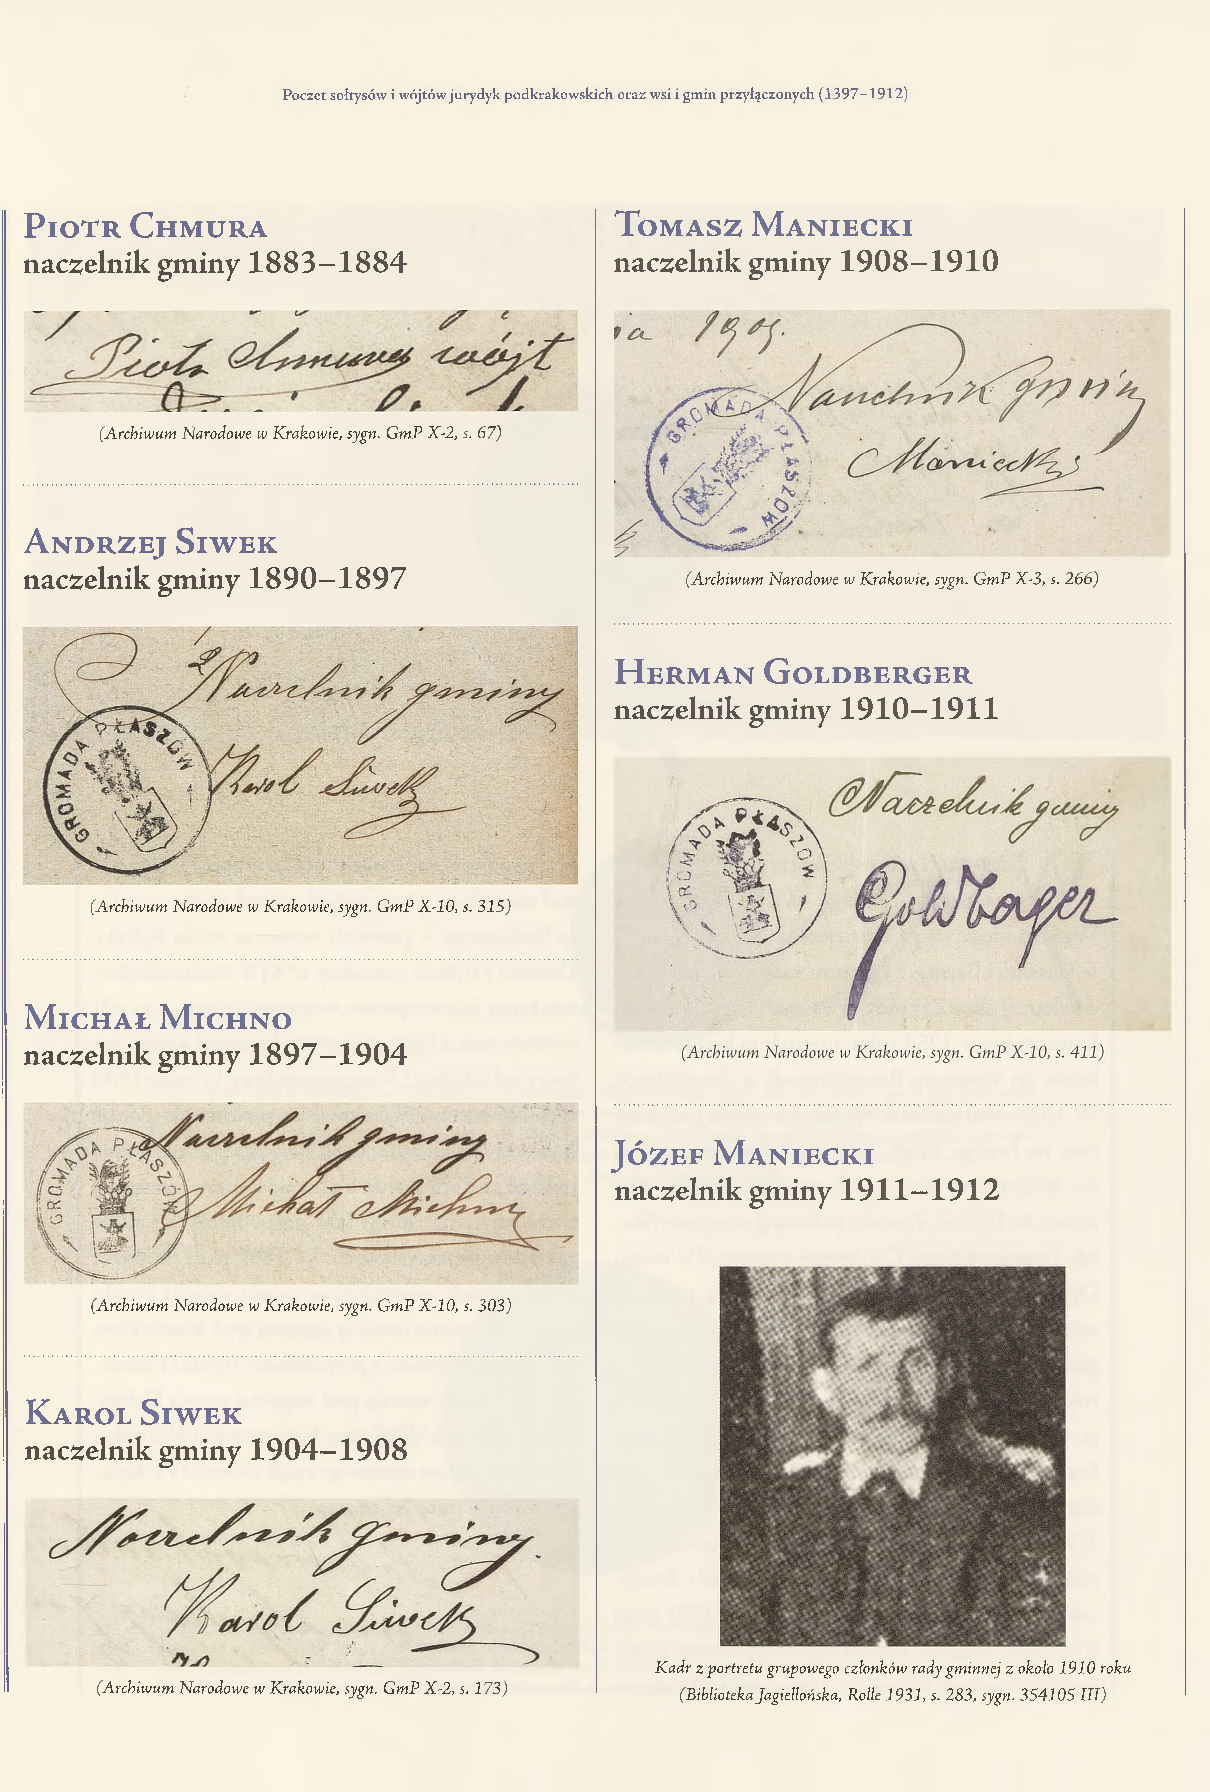 Poczet sołtysów i wójtów jurydyk podkrakowskich oraz wsi i gmin przyłączonych (1397–1912)
Piotr Chmura
naczelnik gminy 1883–1884
Piotr Chmura wójt
(Archiwum Narodowe w Krakowie, sygn. GmP X-2, s. 67)
Andrzej Siwek
naczelnik gminy 1890–1897
Naczelnik gminy
GROMADA PŁASZÓW
Karol Siwek
(Archiwum Narodowe w Krakowie, sygn. GmP X-10, s. 315)
Michał Michno
naczelnik gminy 1897–1904
Naczelnik gminy
GROMADA PŁASZÓW
Michał Michno
(Archiwum Narodowe w Krakowie, sygn. GmP X-10, s. 303)
Karol Siwek
naczelnik gminy 1904–1908
Naczelnik gminy.
Karol Siwek
(Archiwum Narodowe w Krakowie, sygn. GmP X-2, s. 173)
Tomasz Maniecki
naczelnik gminy 1908–1910
ia 1909.
Naczelnik gminy
GROMADA PŁASZÓW
Maniecki
(Archiwum Narodowe w Krakowie, sygn. GmP X-3, s. 266)
Herman Goldberger
naczelnik gminy 1910–1911
Naczelnik gminy
GROMADA PŁASZÓW
Goldberger
(Archiwum Narodowe w Krakowie, sygn. GmP X-10, s. 411)
Józef Maniecki
naczelnik gminy 1911–1912
Kadr z portretu grupowego członków rady gminnej z około 1910 roku
(Biblioteka Jagiellońska, Rolle 1931, s. 283, sygn. 354105 III)